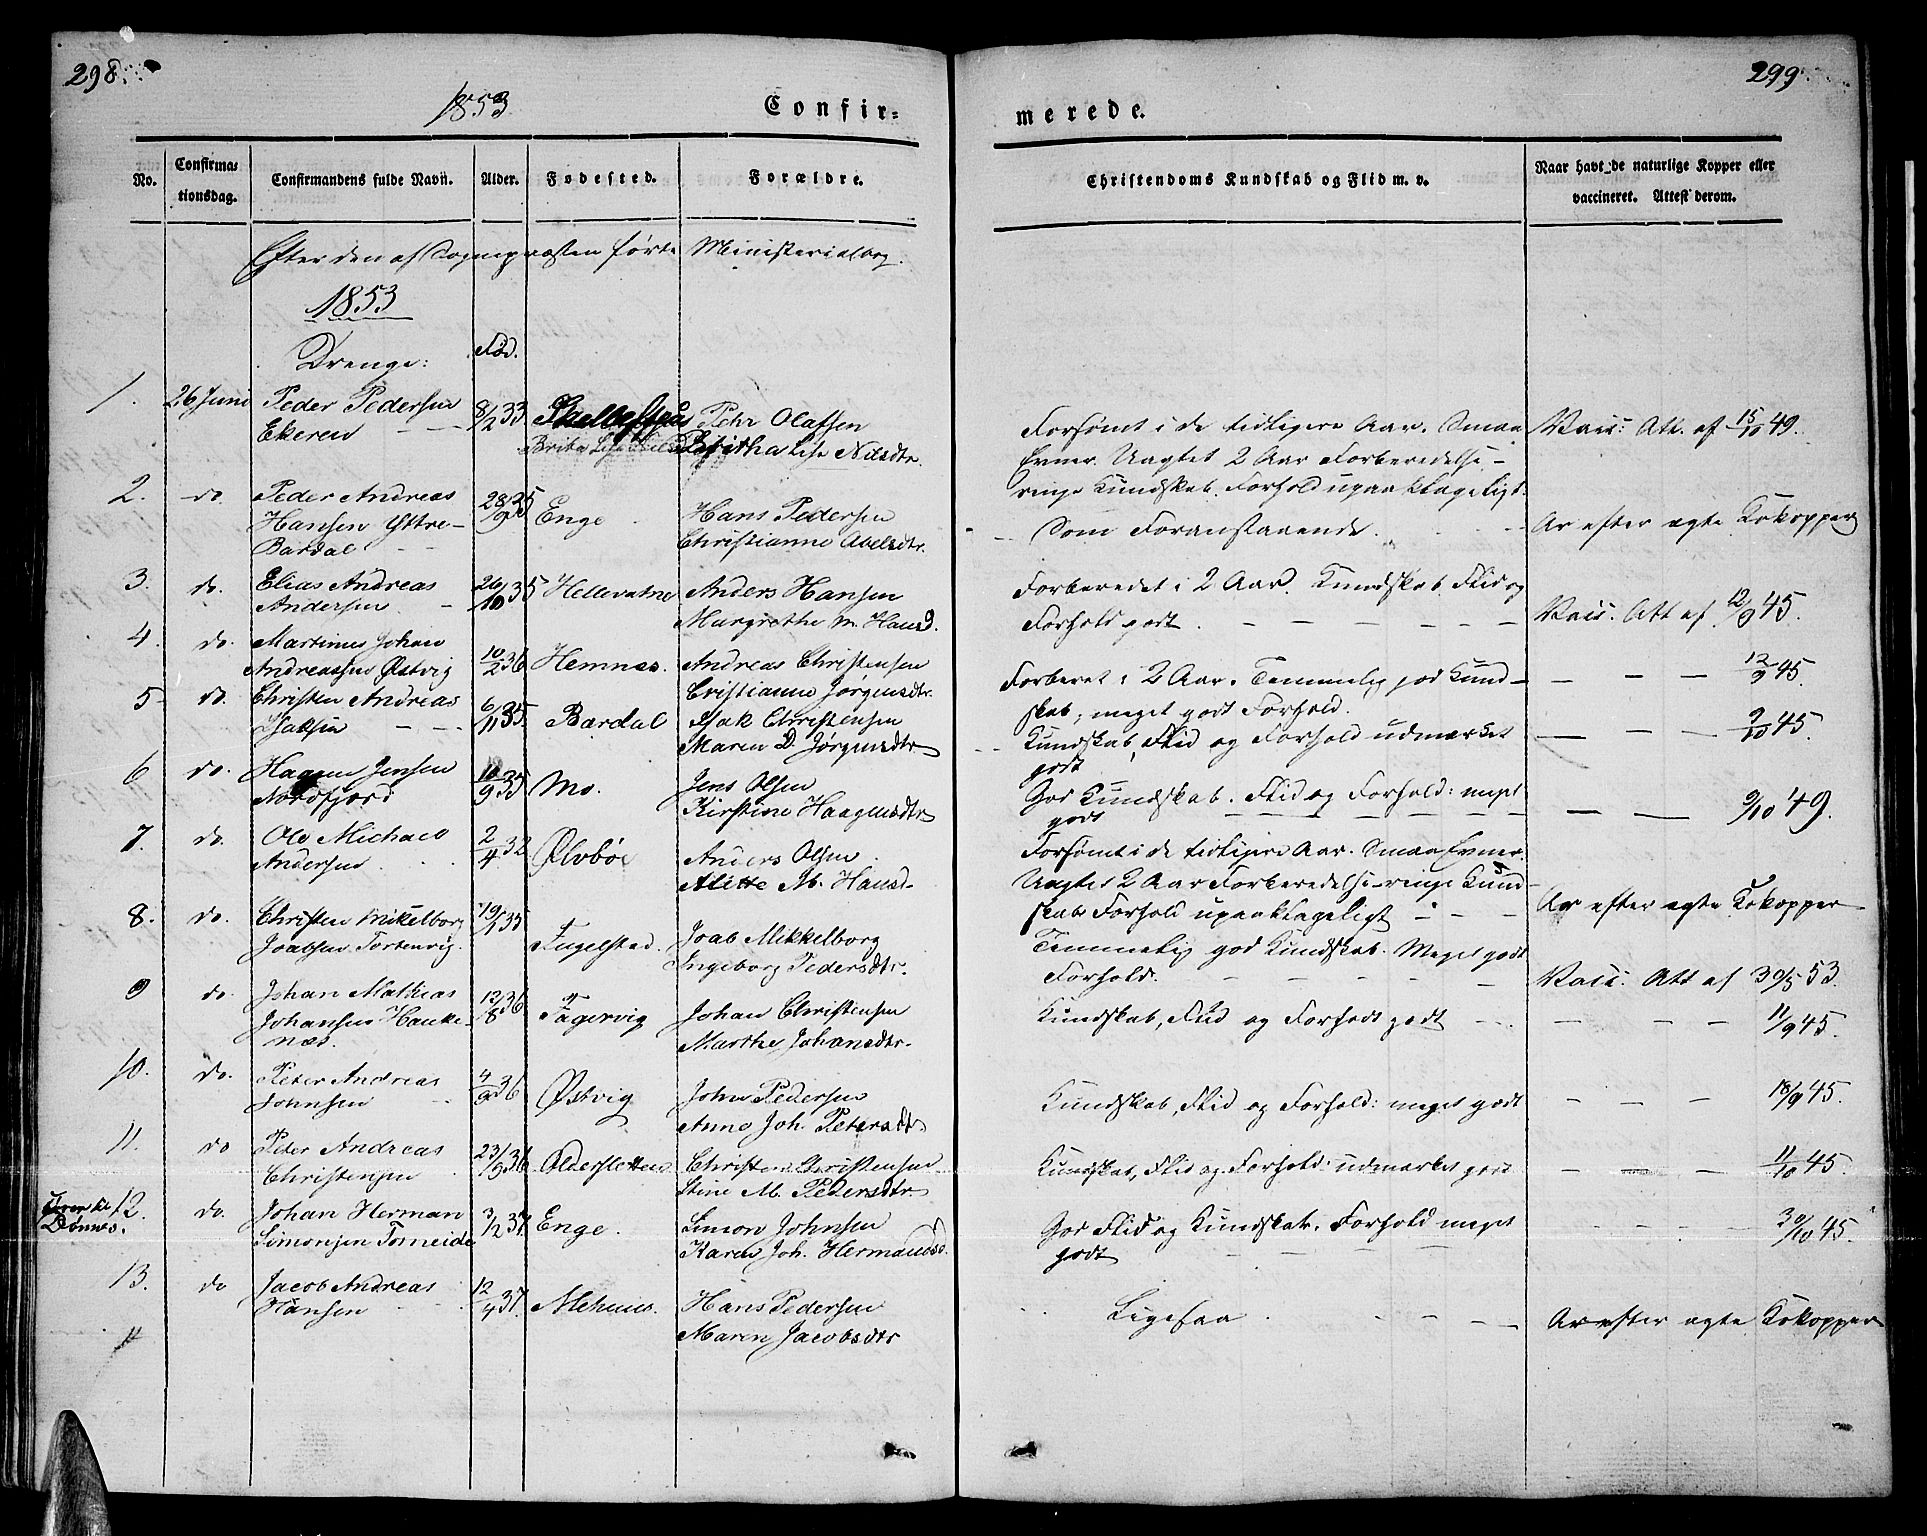 298.
1853.
Confir-
No.
Confirmationsdag.
Confirmandens fulde Navn.
Alder.
Fødested.
Forældre.
Efter den af Sognepræsten førte Ministerialbog.
1853
Drenge: Fød.
1. 26 Juni Peder Pedersen 8/2 33 Petr Olafsen
Ekeren Britha Lise Nilsdtr.
2. do. Peder Andreas 28/9 35 Enge Hans Pedersen
Hansen Yttre- Christianne Abelsdtr.
Bardal
3. do. Elias Andreas 26/10 35 Hellevatne Anders Hansen
Andersen Margrethe M. Hansd.
4. do. Martinus Johan
Andreassen Østvig 10/2 36 Hemnæs. Andreas Christensen
5 do. Christen Andreas 6/11 35. Cristianne Jørgensdtr.
Isaksen Bardal Isak Christensen
Maren D. Jørgensdtr
6 do. Hagen Jensen 10/9 35 Mo. Jens Olsen
Nordfjord Kirstine Haagensdtr
7. do. Ole Michael 2/4 32 Ølvbøe Anders Olsen
Andersen Alette M. Hansd.
8. do. Christen Mikelborg 19/1 35
Joabsen Tortenvig. Fugelstad. Joab Mikkelborg
Ingeborg Pedersdtr.
9 do. Johan Mathias 12/8 36 Fagervig Johan Christensen
Johansen Hauke-
næs. Marthe Johansdtr.
10. do. Peter Andreas 4/9 36 Østvig John Pedersen
Johnsen Anne Joh. Petersdtr
11. do Peter Andreas 23/9 36 Oldersletten Christen Christensen
Christensen Stine M. Pedersdtr
Dønnes.
12. do. Johan Herman 3/2 37 Enge. Simon Johnsen
Simonsen Forneide Karen Joh. Hermansd.
13. do Jacob Andreas 12/4 37. Hans Pedersen
Hansen Maren Jacobsdtr
299.
merede.
Christendoms Kundskab og Flid m. v.
Naar havt de naturlige Kopper eller
vaccineret. Attest derom.
Forsømt i de tidligere Aar. Smaa Vacc: Att. af 15/10 49.
Evner. Uagtet 2 Aar Forberedelse-
ringe Kundskab. Forhold upaaklageligt.
Som Foranstaaende. Ar efter ægte Kokopper
Forberedet i 2 Aar. Kundskab, Flid og
Forhold godt. Vacc: Att af 12/9 45.
Forberet i 2 Aar. Temmelig god Kund- 12/9 45.
skab, meget godt Forhold.
Kundskab, Flid og Forhold udmærket 9/10 45.
godt
God Kundskab. Flid og Forhold: meget
godt 9/10 49.
Forsømt i de tidligere Aar. Smaa Evner.
Uagtet 2 Aar Forberedelse-ringe Kund-
skab Forhold upaaklageligt Ar efter ægte Kokopper
Temmelig god Kundskab. Meget godt
Forhold. Vacc: Att af 30/5 53.
Kundskab, Flid og Forhold godt 11/9 45.
Kundskab, Flid og Forhold: meget godt 18/9 45.
Kundskab, Flid og Forhold: udmærket godt 11/10 45.
God Flid og Kundskab. Forhold meget 30/10 45.
godt
Ligesaa Ar efter ægte Kokopper